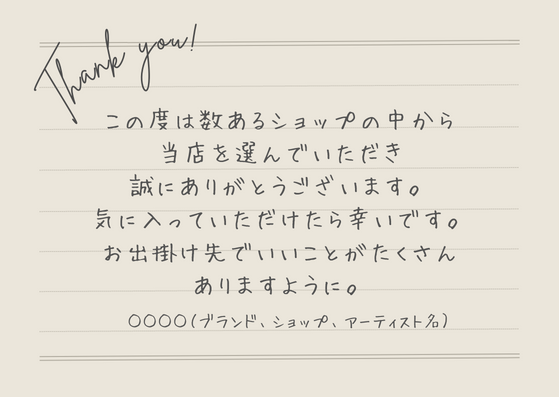 Thank you!
この度は数あるショップの中から
当店を選んでいただき
誠にありがとうございます。
気に入っていただけたら幸いです。
お出掛け先でいいことがたくさん
ありますように。
○○○○(ブランド、ショップ、アーティスト名)